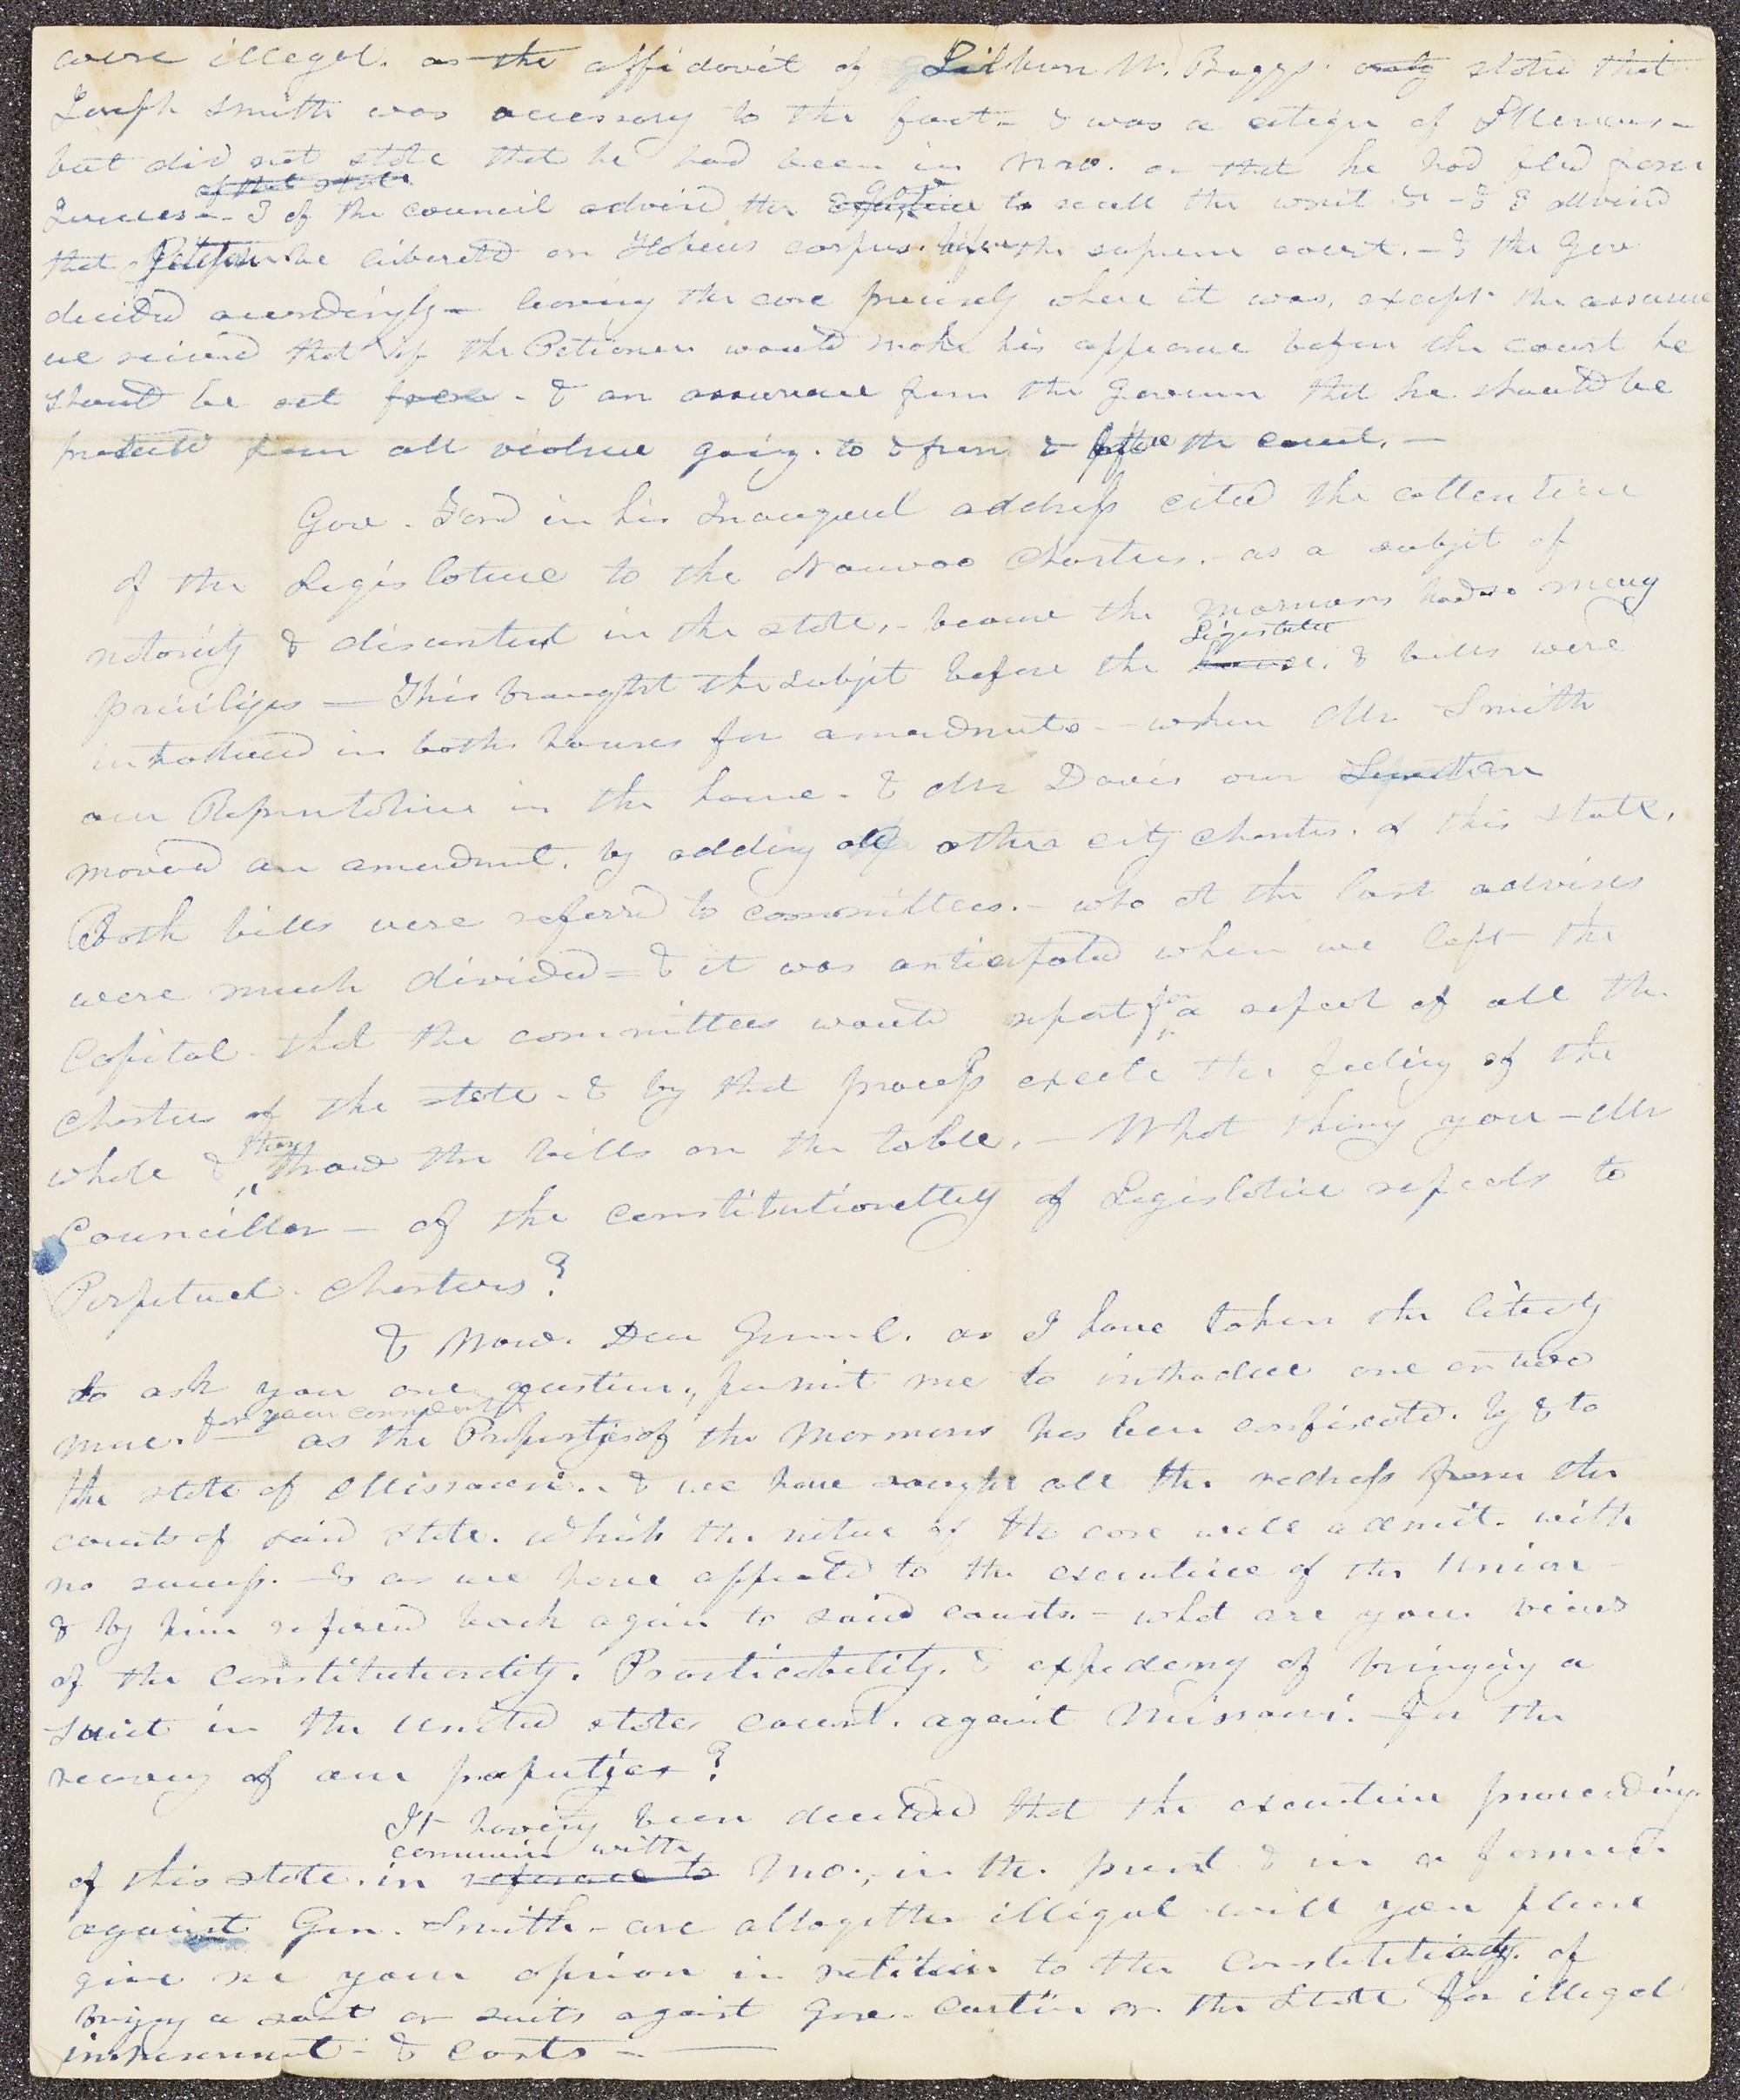 were illegal. as the affidavit of Lilburn W. Boggs. only stated that
Joseph Smith was accessory to the fact- & was a citizen of Illinois-
but did not state that he had been in Mo. or that he had fled from
of that state
Justice- 3 of the council advised the Gov to recall the writ &c - & 3 advised
that Petitioner be liberated on Habeus corpus. before the supreme court. - & the Gov
decided accordingly- leaving the case precisely where it was, except the assurance
we recieved that if the Petioner would make his appearance before the court he
should be set free - & an assurance from the Governor that he should be
protected from all violence going. to & from & before the court. -
Gov. Ford in his Inaugural address cited the attention
of the Legislature to the Nauvoo Charters. - as a subject of
notoriety & discontent in the state, - because the Mormons had so many
Legislature
privileges - This brought the subject before the house. & bills were
introduced in both houses for amendments - when Mr Smith
our Representative in the house. & Mr Davis our
moved an amendment. by adding all other city charters. of this state.
Both bills were referred to committees. - who at the last advises
were much divided = & it was anticipated when we left the
for
Capital. that the committees would report a repeal of all the
charters of the state - & by that process excite the feeling of the
then
whole & throw the bills on the table. - What think you - Mr
Councillor - of the constitutionality of Legislative repeals to
Perpetual. Charters?
& Now. Dear General. as I have taken the liberty
to ask you one question, permit me to introduce one or two
for your comment
more. as the Properties of the Mormons has been confiscated. by & to
the state of Missouri. - & we have sought all the redress from the
courts of said State. which the nature of the case will admit. with
no success. - & as we have appealed to the executive of the Union -
& by him referred back again to said courts. - what are your views
of the constitutionality. Practicability. & expediency of bringing a
suit in the United states court. against Missouri. for the
recovery of our properties?
It having been decided that the executive proceedings
common with
of this state. in reference to Mo., in the present & in a former.
against Gen. Smith - are altogether illegal will you please
give me your opinion in relation to the Constitutionality of
bringing a suit or suits against Gov. Carlin or the State for illegal
imprisonment - & costs -